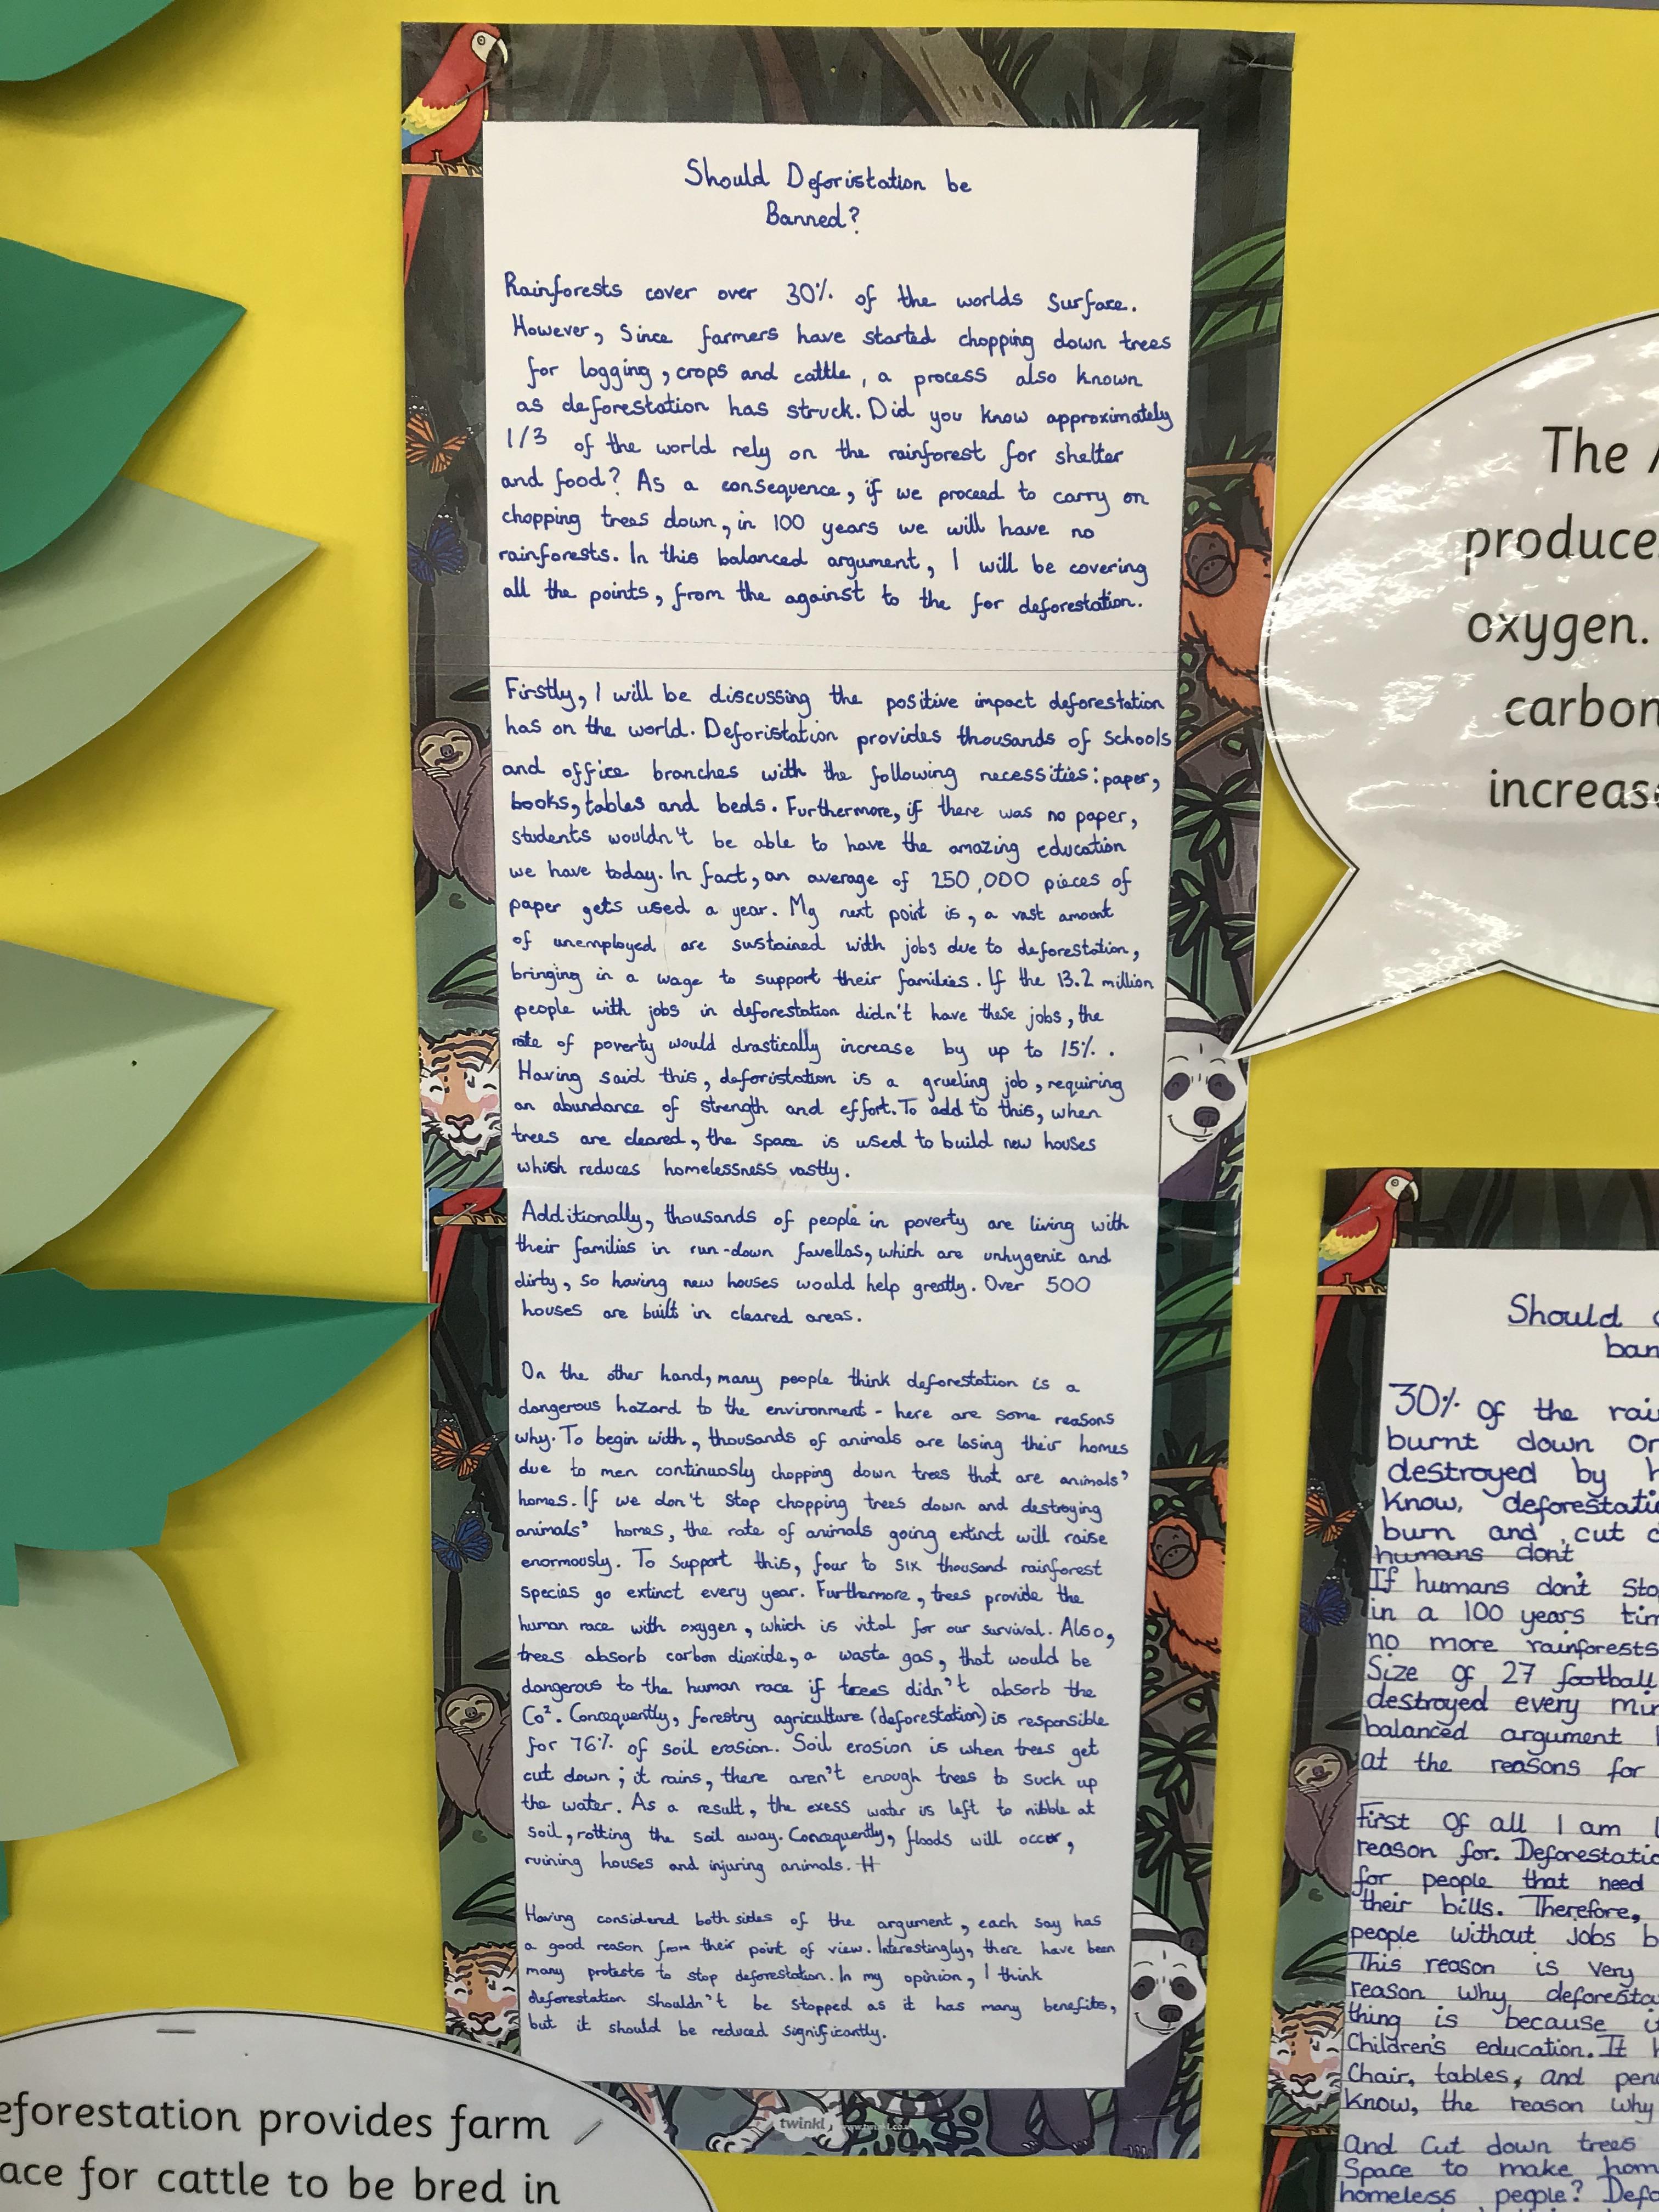 Should Deforistation be
Banned?
Rainforests cover over 30% of the worlds surface.
However, Since farmers have started chopping down trees
for logging, crops and cattle, a process also known
as deforestation has struck. Did you know approximately
1/3 of the world rely on the rainforest for shelter
and food? As a consequence, if we proceed to carry on
chopping trees down, in 100 years we will have no
rainforests. In this balanced argument, I will be covering
all the points, from the against to the for deforestation.
Firstly, I will be discussing the positive impact deforestation
has on the world. Deforistation provides thousands of schools
and office branches with the following necessities: paper,
books, tables and beds. Furthermore, if there was no paper,
students wouldn't be able to have the amazing education
we have today. In fact, an average of 250,000 pieces of
paper gets used a year. My next point is, a vast amount
of unemployed are sustained with jobs due to deforestation,
bringing in a wage to support their families. If the 13.2 million
people with jobs in deforestation didn't have these jobs, the
rate of poverty would drastically increase by up to 15%.
Having said this, deforistation is a grueling job, requiring
an abundance of strength and effort. To add to this, when
trees are cleared, the space is used to build new houses
which reduces homelessness vastly.
Additionally, thousands of people in poverty are living with
their families in run-down favellas, which are unhygenic and
dirty, so having new houses would help greatly. Over 500
houses are built in cleared areas.
On the other hand, many people think deforestation is a
dangerous hazard to the environment - here are some reasons
why. To begin with, thousands of animals are losing their homes
due to men continuosly chopping down trees that are animals'
homes. If we don't stop chopping trees down and destroying
animals' homes, the rate of animals going extinct will raise
enormously. To support this, four to six thousand rainforest
species go extinct every year. Furthermore, trees provide the
human race with oxygen, which is vital for our survival. Also,
trees absorb carbon dioxide, a waste gas, that would be
dangerous to the human race if trees didn't absorb the
Co². Concequently, forestry agriculture (deforestation) is responsible
for 76% of soil erosion. Soil erosion is when trees get
cut down; it rains, there aren't enough trees to suck up
the water. As a result, the exess water is left to nibble at
soil, rotting the soil away. Concequently, floods will occur,
ruining houses and injuring animals. H
Having considered both sides of the argument, each say has
a good reason from their point of view. Interestingly, there have been
many protests to stop deforestation. In my opinion, I think
deforestation shouldn't be stopped as it has many benefits,
but it should be reduced significantly.
twinkl
The
produce
oxygen.
carbon
increas
eforestation provides farm
ace for cattle to be bred in
Should
ban
30% of the rai
burnt down or
destroyed by h
know, deforestati
burn and, cut
humans dont
If humans don't sto
in a 100 years tim
no more rainforests
Size of 27 football
destroyed every min
balanced argument
at the reasons for
First of all I am
reason for. Deforestatio
for people that need
their bills. Therefore,
people without jobs b
This reason is very
reason why deforesta
thing is because i
Children's education. It h
Chair, tables, and pen
know, the reason why
And Cut down trees
Space to make hom
homeless people? Defo